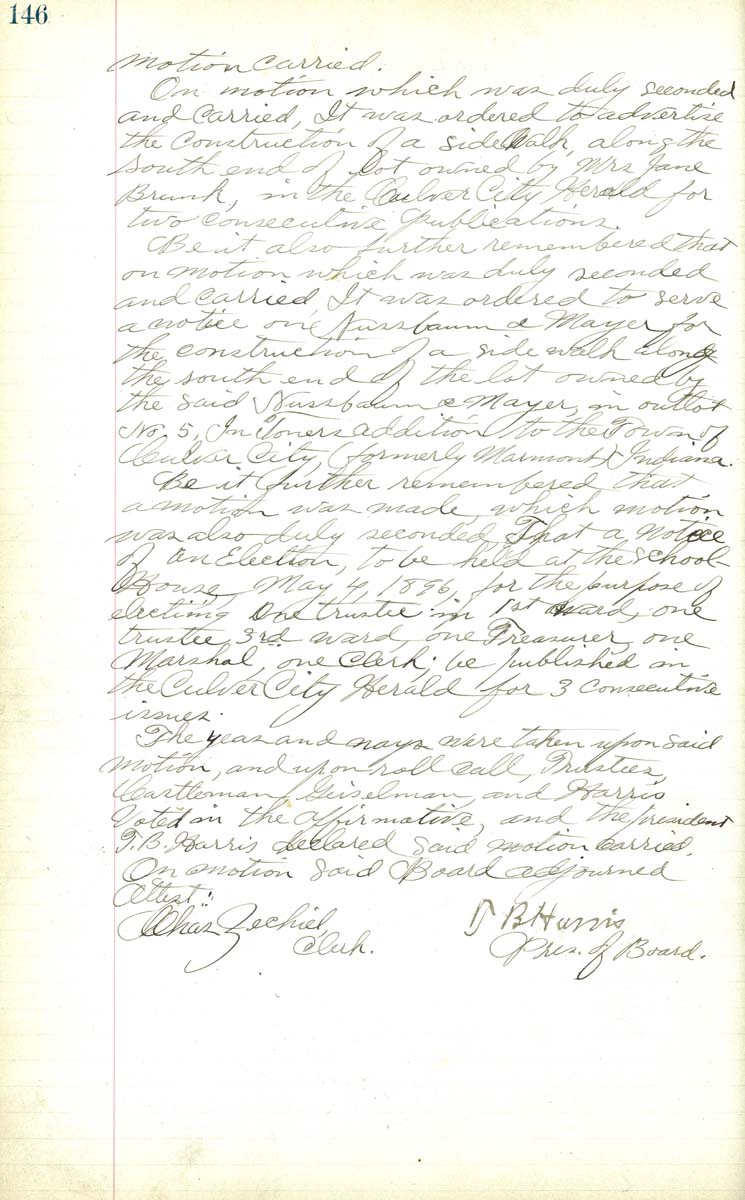 146
motion carried.
On motion which was duly seconded
and carried, It was ordered to advertise
the construction of a sidewalk, along the
south end of Lot owned by Mrs Jane
Brunk, in the Culver City Herald for
two consecutive publications.
Be it also further remembered that
on motion which was duly seconded
and carried, It was ordered to serve
a notice on Nussbaum & Mayer for
the construction of a side walk along
the south end of the lot owned by
the said Nussbaum & Mayer, in outlot
No. 5, In Toners addition to the Town of
Culver City, (formerly Marmont) Indiana.
Be it further remembered that
a motion was made, which motion
was also duly seconded, That a notice
of an Election, to be held at the school-
House, May 4, 1896, for the purpose of
electing One trustee in 1st ward, one
trustee 3rd ward, one Treasurer, one
Marshal, one Clerk; be published in
the Culver City Herald for 3 consecutive
issues.
The yeas and nays were taken upon said
motion, and upon roll call, Trustees,
Castleman, Geiselman, and Harris
voted in the affirmative, and the president
T. B. Harris declared said motion carried.
On motion said Board adjourned
Attest:
Chas Zechiel, T B Harris
Clerk. Pres. of Board.